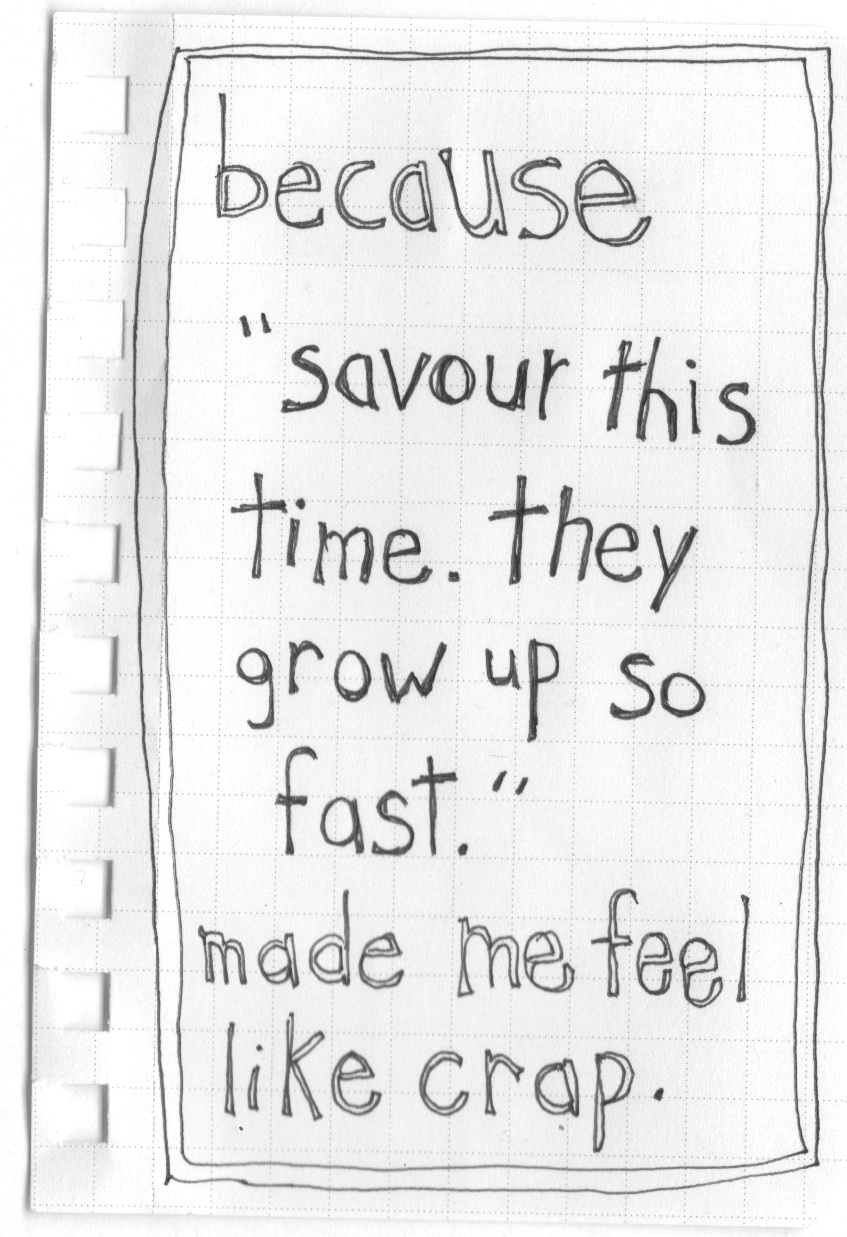 because
"savour this
time. they
grow up so
fast."
made me feel
like crap.